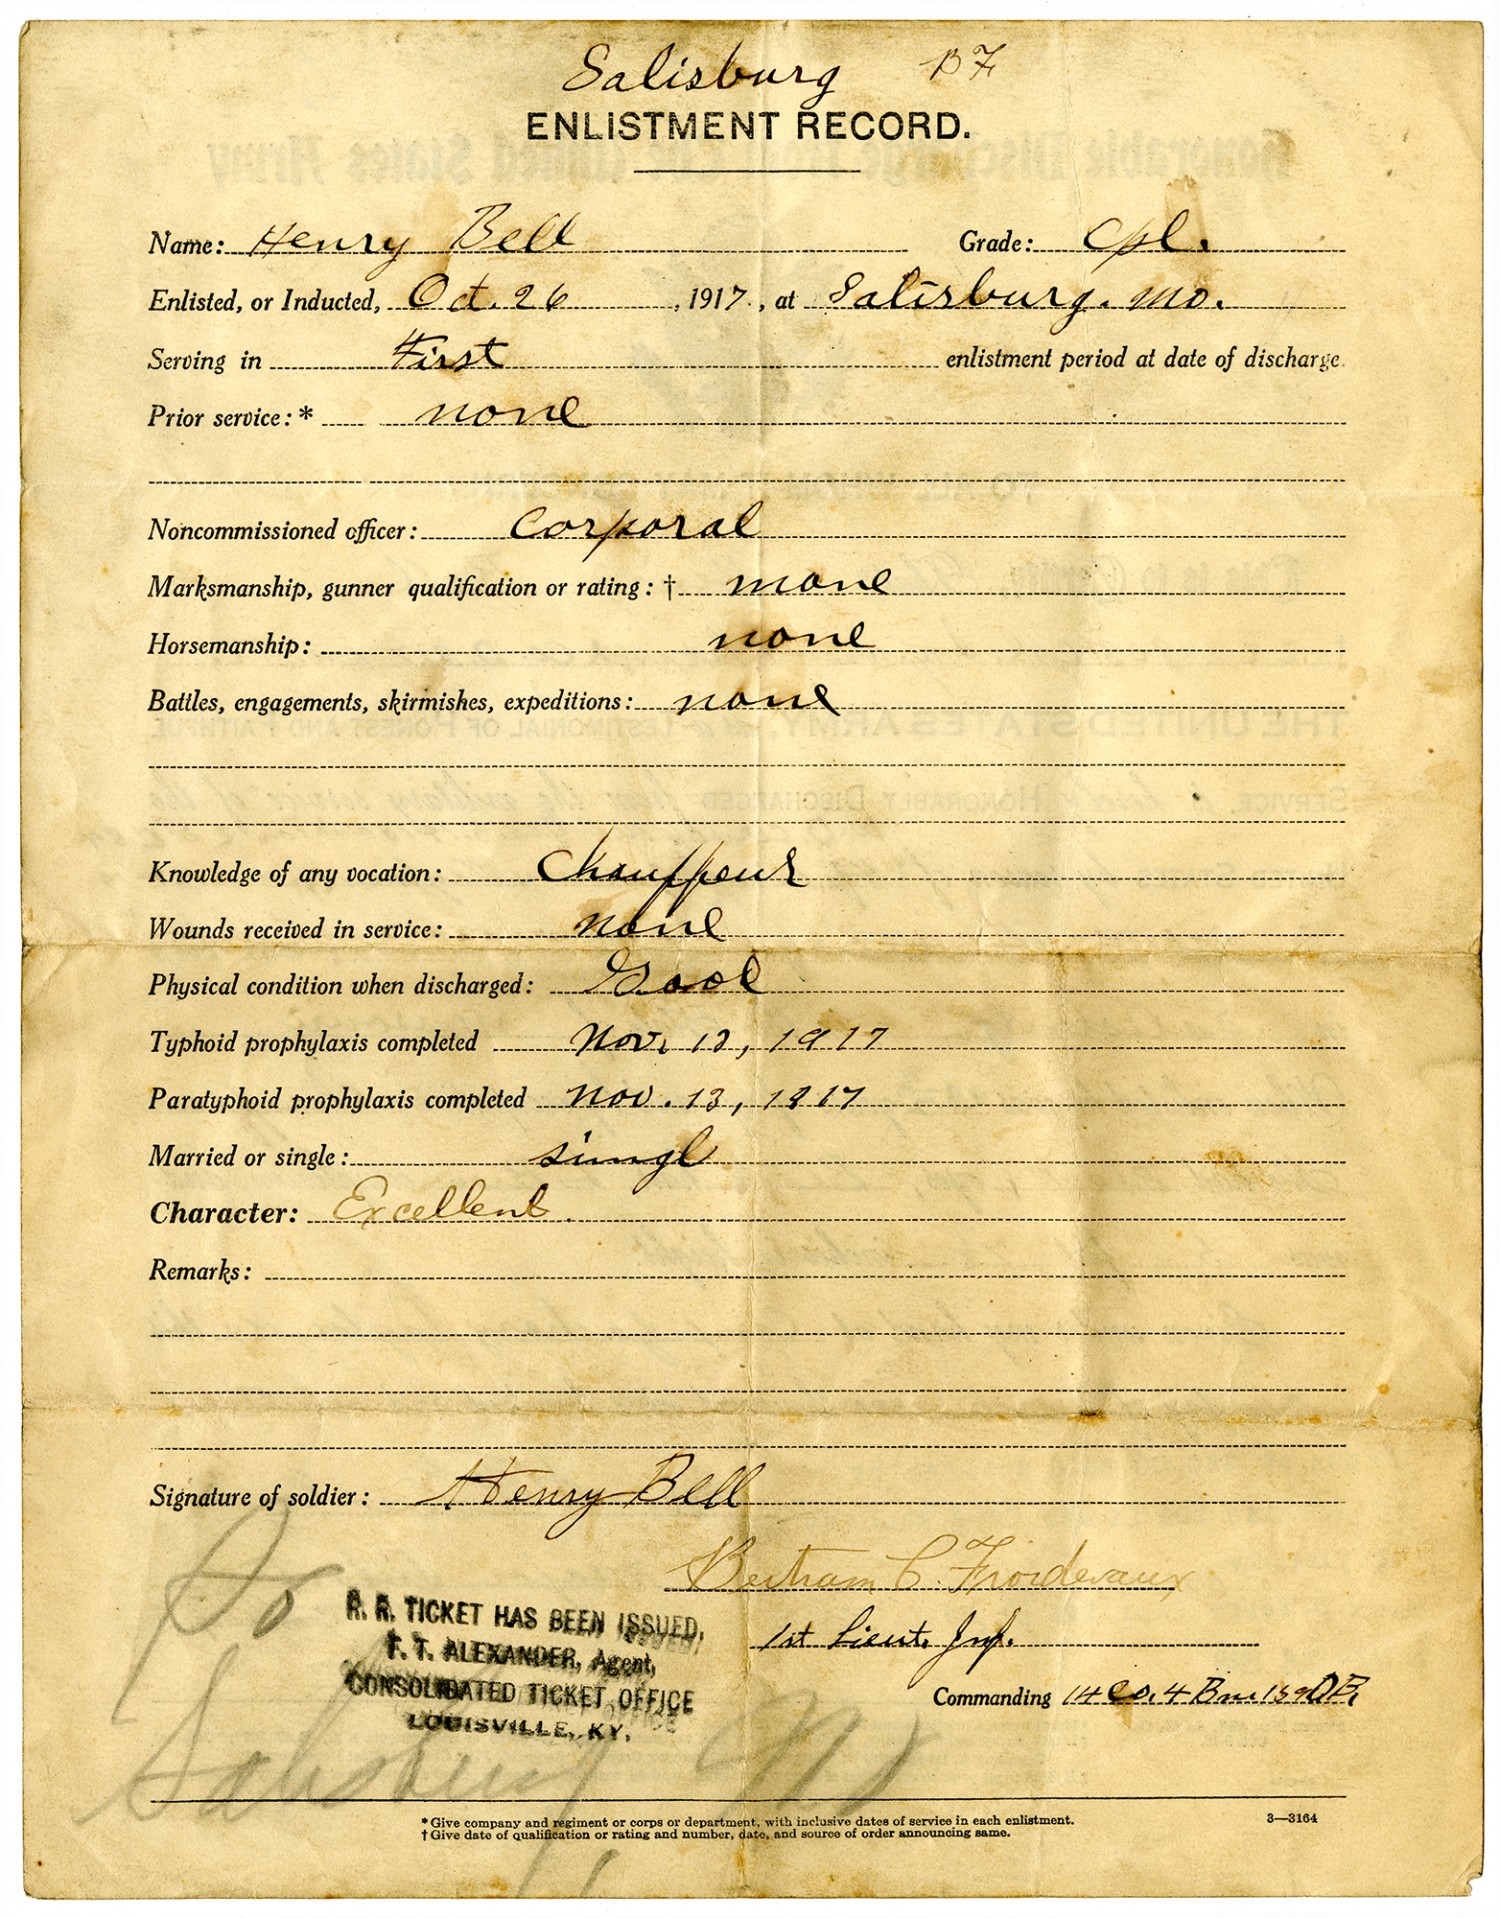 Salisburg BF
ENLISTMENT RECORD.
Name: Henry Bell Grade: Cpl.
Enlisted, or Inducted, Oct. 26, 1917, at Salisburg. Mo.
Serving in First enlistment period at date of discharge
Prior service:* none
Noncommissioned officer: Corporal
Marksmanship, gunner qualification or rating:† none
Horsemanship: none
Battles, engagements, skirmishes, expeditions: none
Knowledge of any vocation: Chauffeur
Wounds received in service: none
Physical condition when discharged: Good
Typhoid prophylaxis completed Nov. 13, 1917
Paratyphoid prophylaxis completed Nov. 13, 1917
Married or single: singl
Character: Excellent.
Remarks:
Signature of soldier: Henry Bell
Bertram C. Froidevaux
To
R. R. TICKET HAS BEEN ISSUED,
1st Lieut. Inf.
T. T. ALEXANDER, Agent,
CONSOLIDATED TICKET OFFICE
Commanding 14 Co. 4 Bn 159 DB.
LOUISVILLE, KY.
Salisburg
*Give company and regiment or corps or department, with inclusive dates of service in each enlistment. 3—3164
†Give date of qualification or rating and number, date, and source of order announcing same.